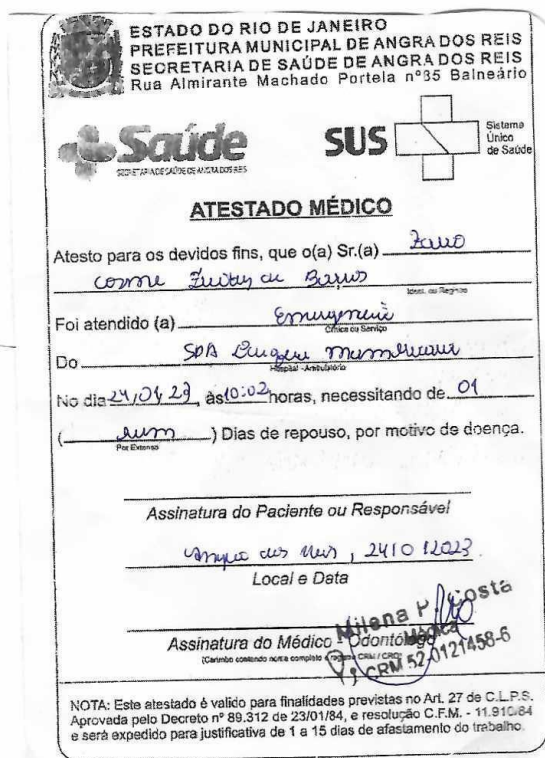 ESTADO DO RIO DE JANEIRO
PREFEITURA MUNICIPAL DE ANGRA DOS REIS
SECRETARIA DE SAÚDE DE ANGRA DOS REIS
Rua Almirante Machado Portela nº35 Balneário
Saúde
SECRETARIA DE SAÚDE DE ANGRA DOS REIS
SUS
Sistema
Único
de Saúde
ATESTADO MÉDICO
Atesto para os devidos fins, que o(a) Sr.(a)
cosme
Ident. ou Registro
Foi atendido (a) Emergencia
Clínica ou Serviço
Do SPA
Hospital - Ambulatório
No dia 24, 01, 23, às 10:02 horas, necessitando de 01
( um ) Dias de repouso, por motivo de doença.
Por Extenso
Assinatura do Paciente ou Responsável
Angra dos Reis, 24/0 /2023.
Local e Data
Milena P. Costa
Médica
CRM 52-0121458-6
Assinatura do Médico - Odontólogo
(Carimbo contendo nome completo e registro CRM / CRO)
NOTA: Este atestado é valido para finalidades previstas no Art. 27 de C.L.P.S.
Aprovada pelo Decreto nº 89.312 de 23/01/84, e resolução C.F.M. - 11.910/84
e será expedido para justificativa de 1 a 15 dias de afastamento do trabalho.